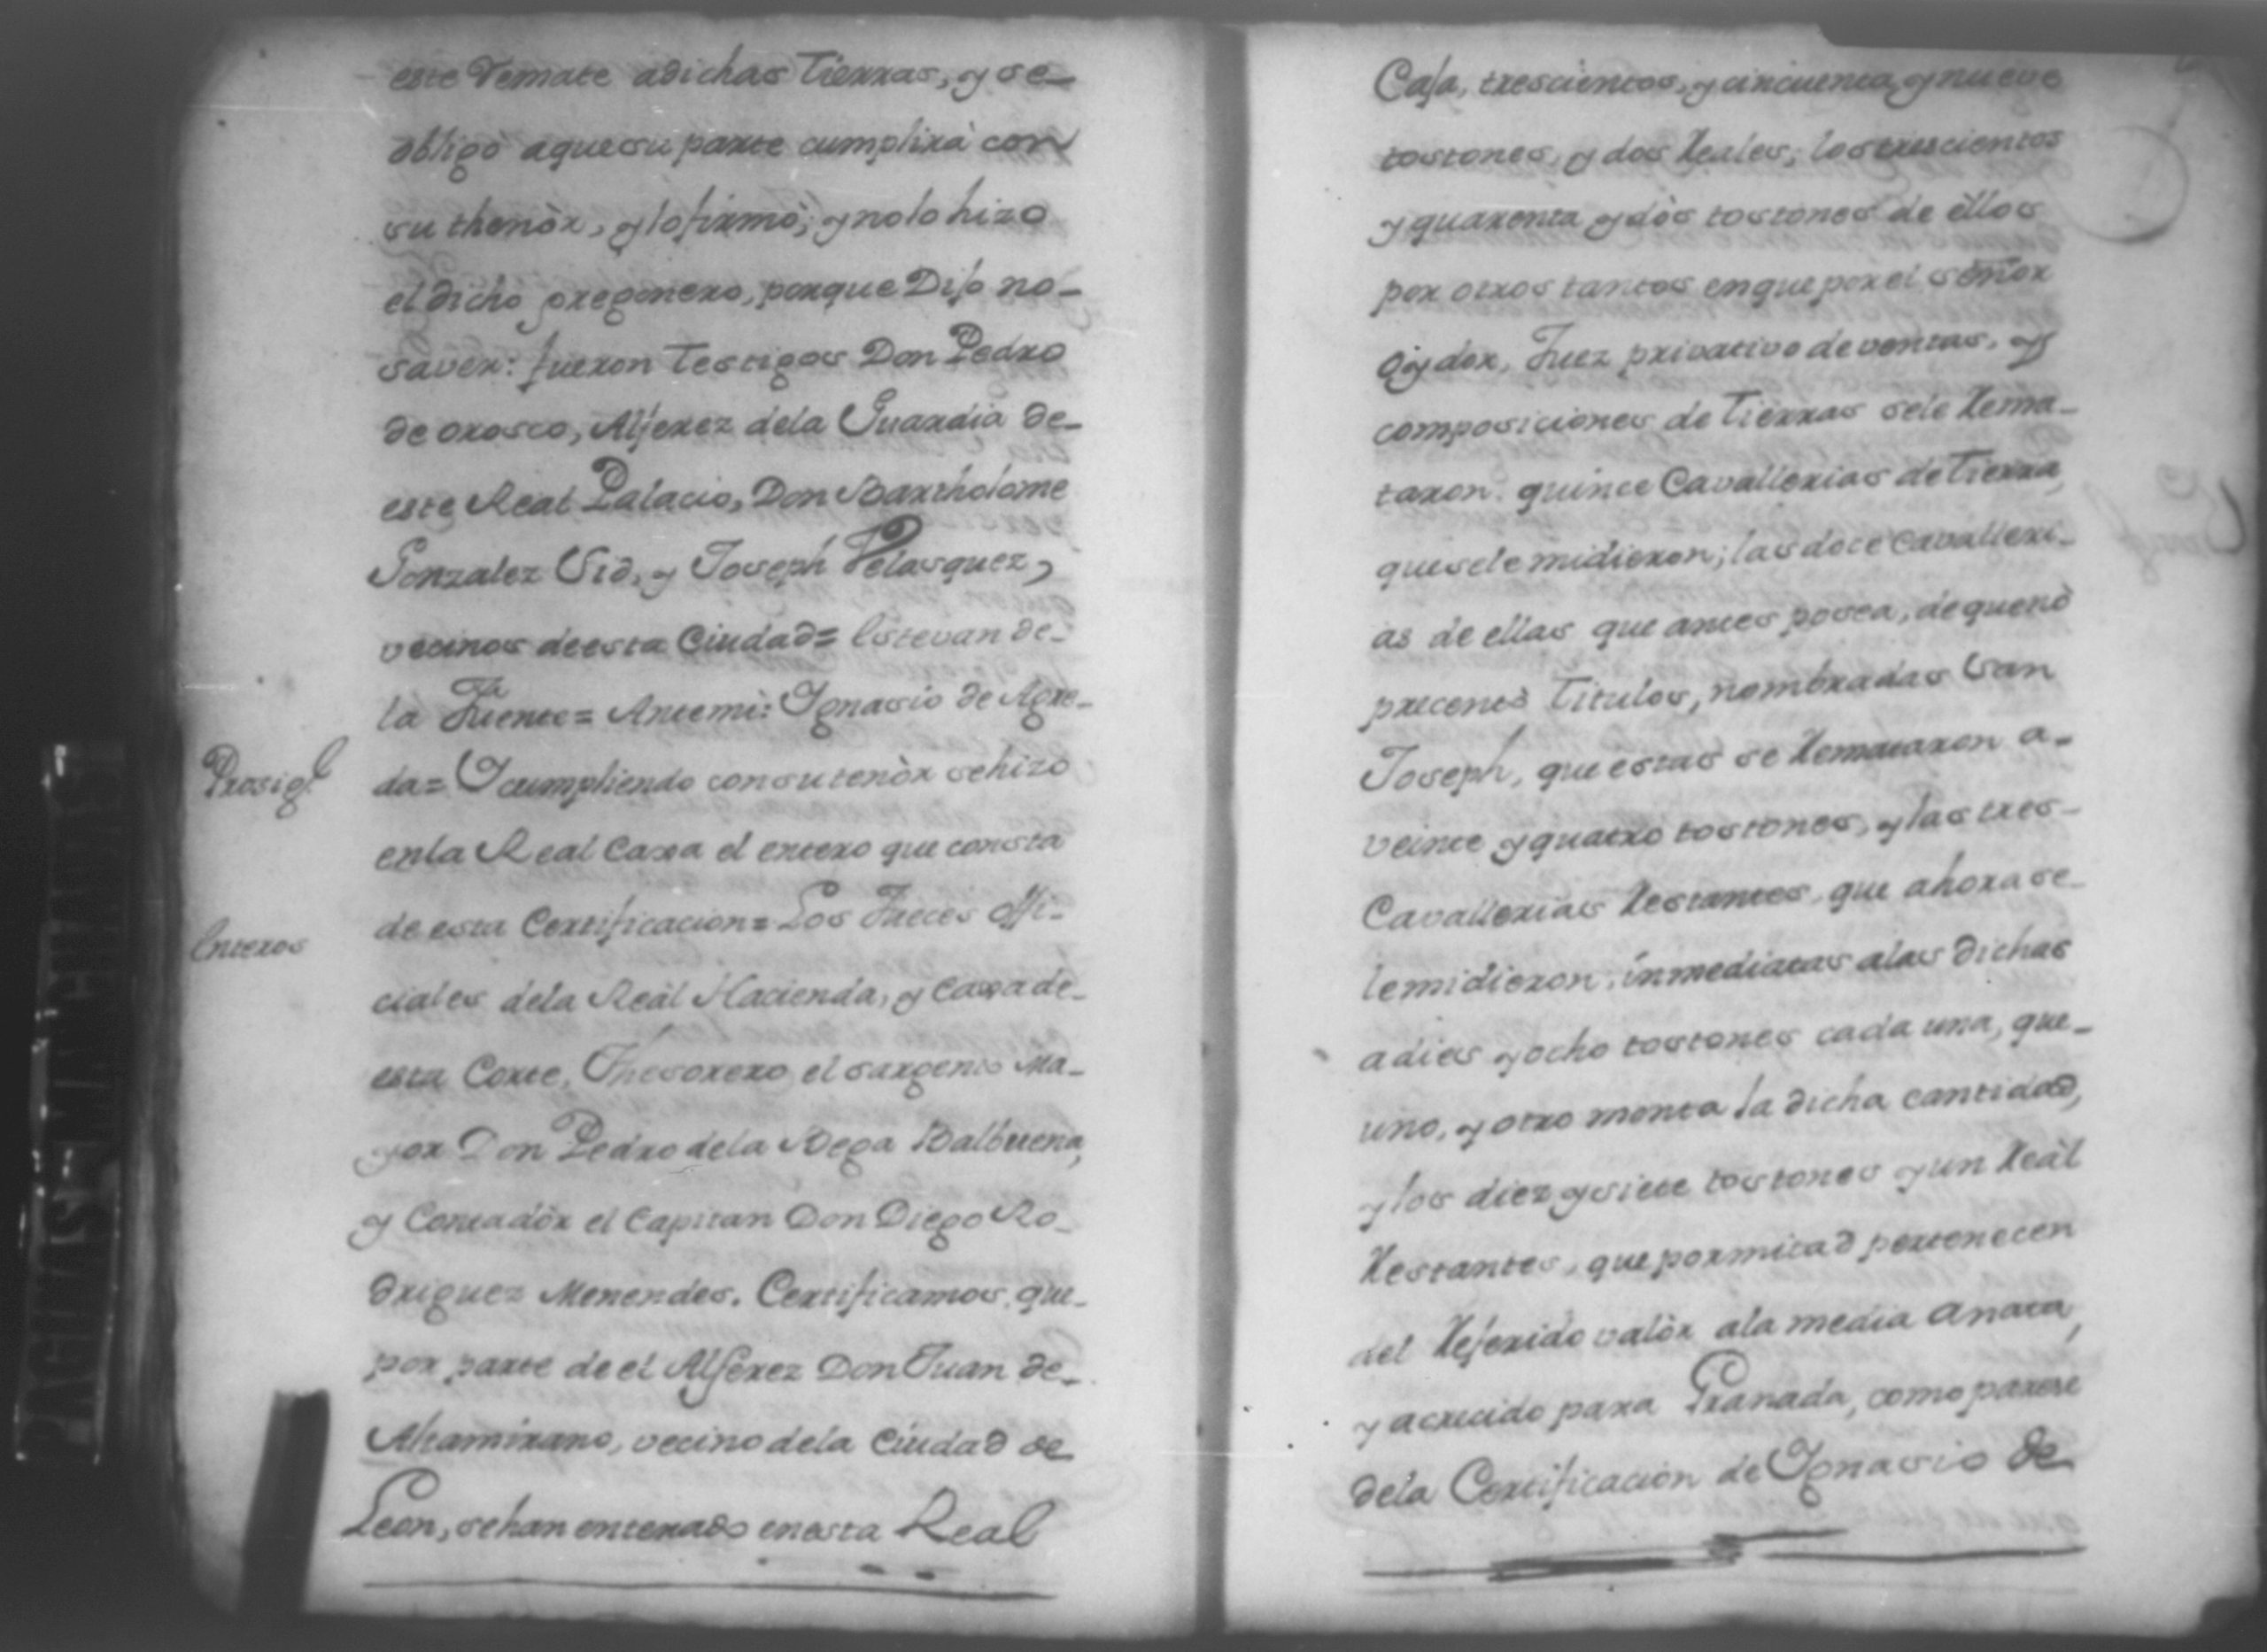 este Remate adichas Tierras, y se-
obligò aquesu parte cumplirà con
su thenòr, y lo firmò; y no lo hizo
el dicho pregonero, porque Dijo no-
saver: fueron Testigos Don Pedro
de orosco, Alferez dela Guardia de-
este Real Palacio, Don Bartholome
Gonzalez Cid, y Joseph Velasquez,
vecinos deesta Ciudad= Estevan de-
la Fuente= Antemi: Ignasio de Agre-
Prosigue
da= Y cumpliendo con su tenòr se hizo
enla Real Caxa el entero que consta
Enteros
de esta Certificacion= Los Jueces Offi-
ciales dela Reàl Hacienda, y Caxa de-
esta Corte, Thesorero el sargento Ma-
yor Don Pedro dela Vega Balbuena,
y Contadòr el Capitan Don Diego Ro-
driguez Menendes. Certificamos, que-
por parte de el Alferez Don Juan de-
Altamirano, vecino dela Ciudad de
Leon, se han enterado enesta Real
Caja, trescientos, y cincuenta, y nueve
tostones, y dos Reales; los trescientos
y quarenta y dòs tostones de èllos
por otros tantos en que por el señor
Oydor, Juez privativo de ventas, y
composiciones de Tierras sele Rema-
taron quince Cavallerias de Tierra,
que sele midieron; las doce Cavalleri-
as de ellas que antes posea, de que nò
precentò Titulos, nombradas San
Joseph, que estas se Remataron a-
veinte y quatro tostones, y las tres-
Cavallerias Restantes, que ahora se-
le midieron, inmediatas alas dichas
a dies y ocho tostones cada una, que-
uno, y otro monta la dicha cantidad,
y los diez y siete tostones y un Reàl
Restantes, que por mitad pertenecen
del Referido valòr ala media anata,
y acrecido para Granada, como parese
dela Certificacion de Ignasio de